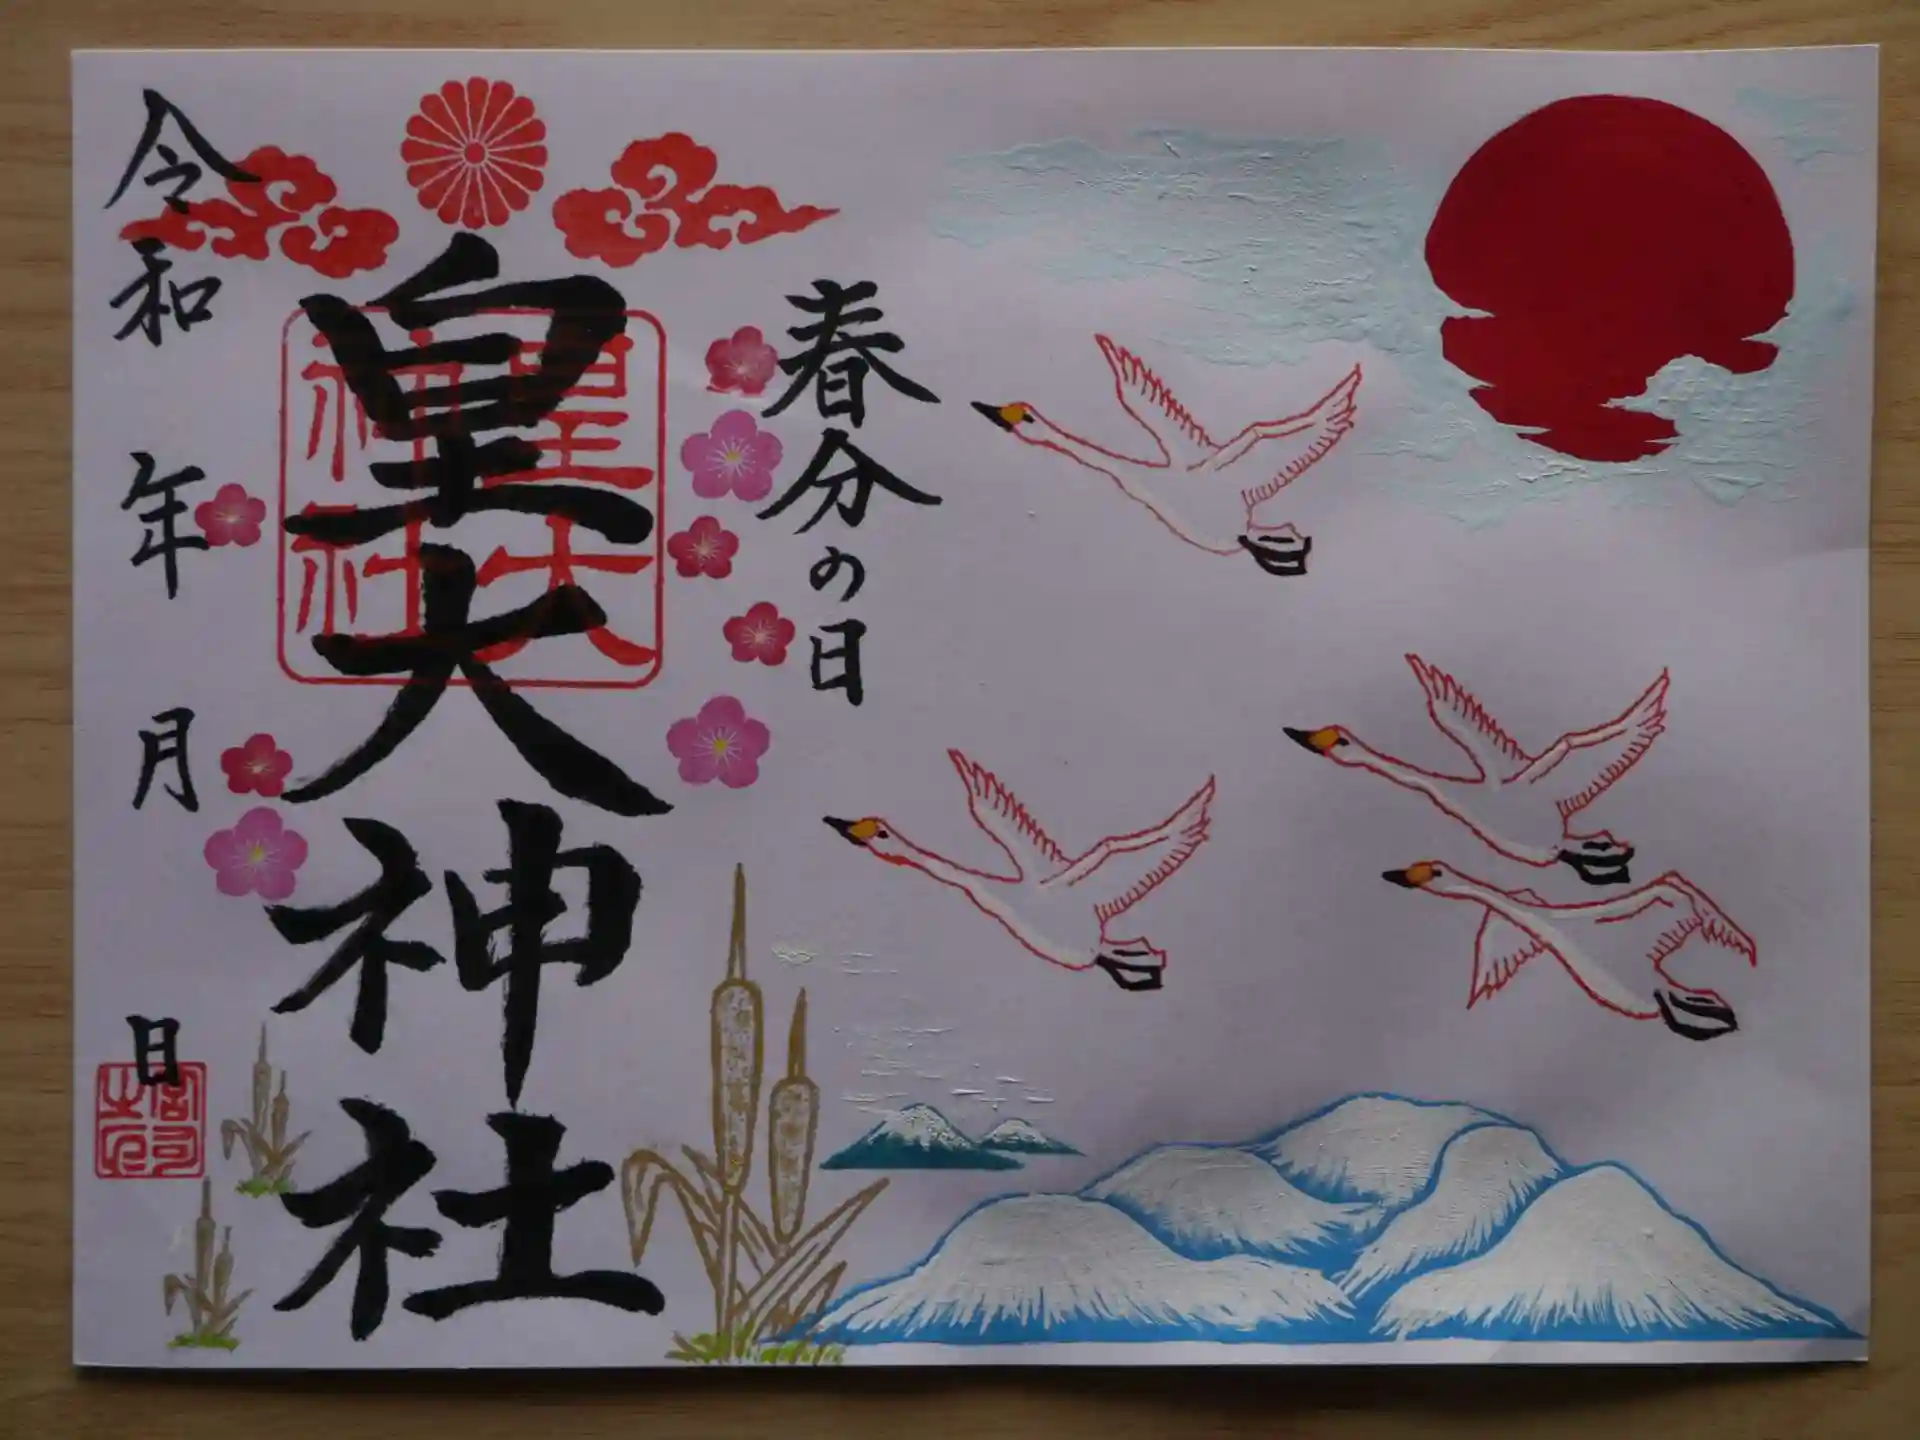 春分の日
皇大神社
皇大
神社
令和 年 月 日
宮司
之印